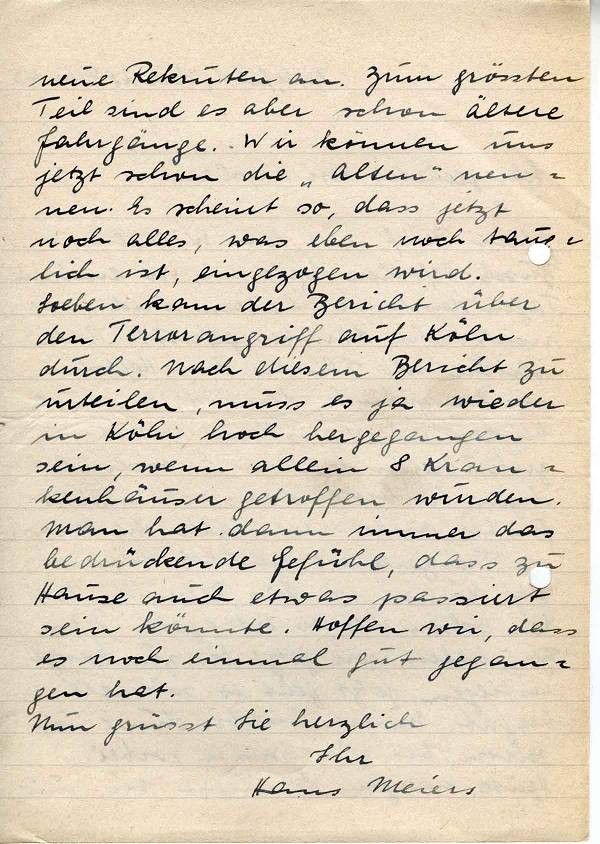 neue Rekruten an. Zum grössten
Teil sind es aber schon ältere
Jahrgänge. Wir können uns
jetzt schon die „Alten“ nen=
nen. Es scheint so, dass jetzt
noch alles, was eben noch taug=
lich ist, eingezogen wird.
Soeben kam der Bericht über
den Terrorangriff auf Köln
durch. Nach diesem Bericht zu
urteilen, muss es ja wieder
in Köln hoch hergegangen
sein, wenn allein 8 Kran=
kenhäuser getroffen wurden.
Man hat dann immer das
bedrückende Gefühl, dass zu
Hause auch etwas passiert
sein könnte. Hoffen wir, dass
es noch einmal gut gegan=
gen hat.
Nun grüsst Sie herzlich
Ihr
Hans Meiers